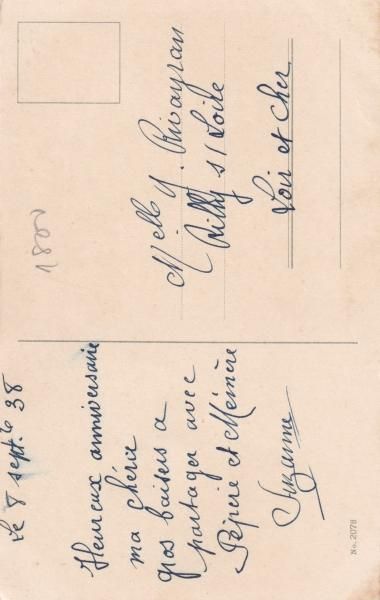 Le 8 septbre 38
Heureux anniversaire
ma chérie
gros baisers a
partager avec
Pépère et Mémère
Suzanne
Melle Y. Rivayran
Rilly s/ Loire
Loir et Cher
1800
No. 2078